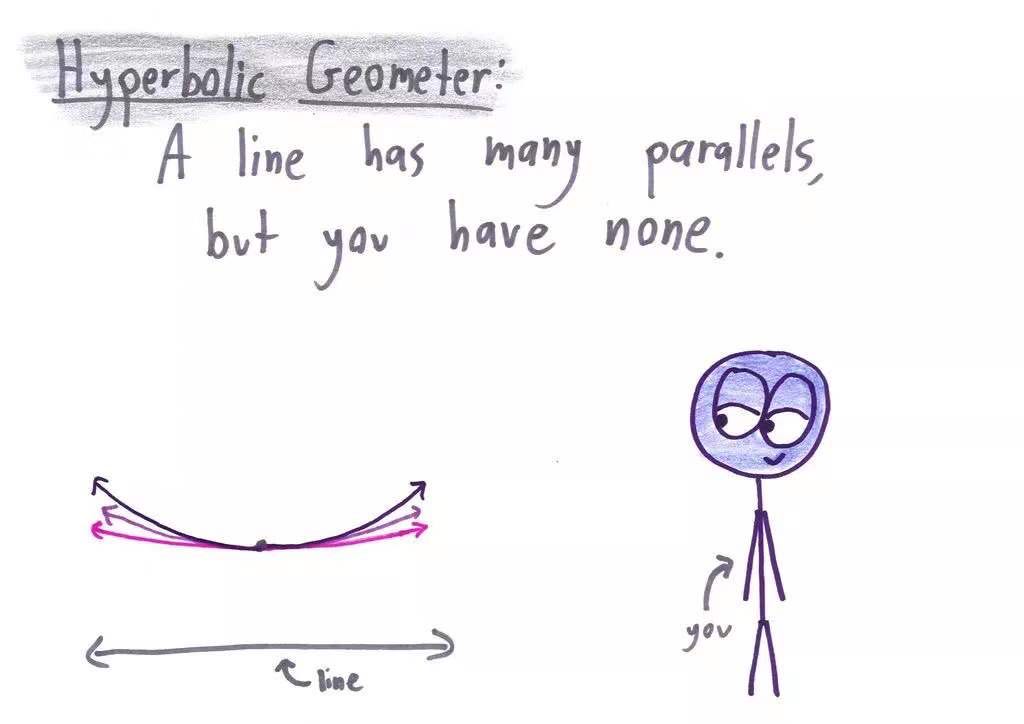 Hyperbolic Geometer:
A line has many parallels,
but you have none.
you
line